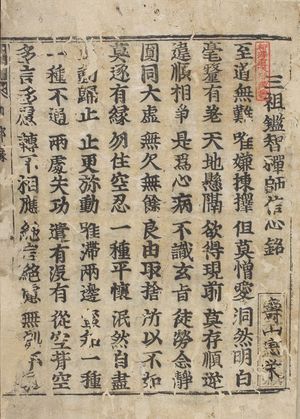 三祖鑑智禪師信心銘
至道無難 唯嫌揀擇 但莫憎愛 洞然明白
毫釐有差 天地懸隔 欲得現前 莫存順逆
違順相爭 是爲心病 不識玄旨 徒勞念静
圓同大虛 無欠無餘 良由取捨 所以不如
莫逐有緣 勿住空忍 一種平懷 泯然自盡
動歸止 止更弥動 唯滯兩邊 知一種
一種不通 兩處失功 遣有没有 從空背空
多言多慮 轉不相應 絶言絶慮 無